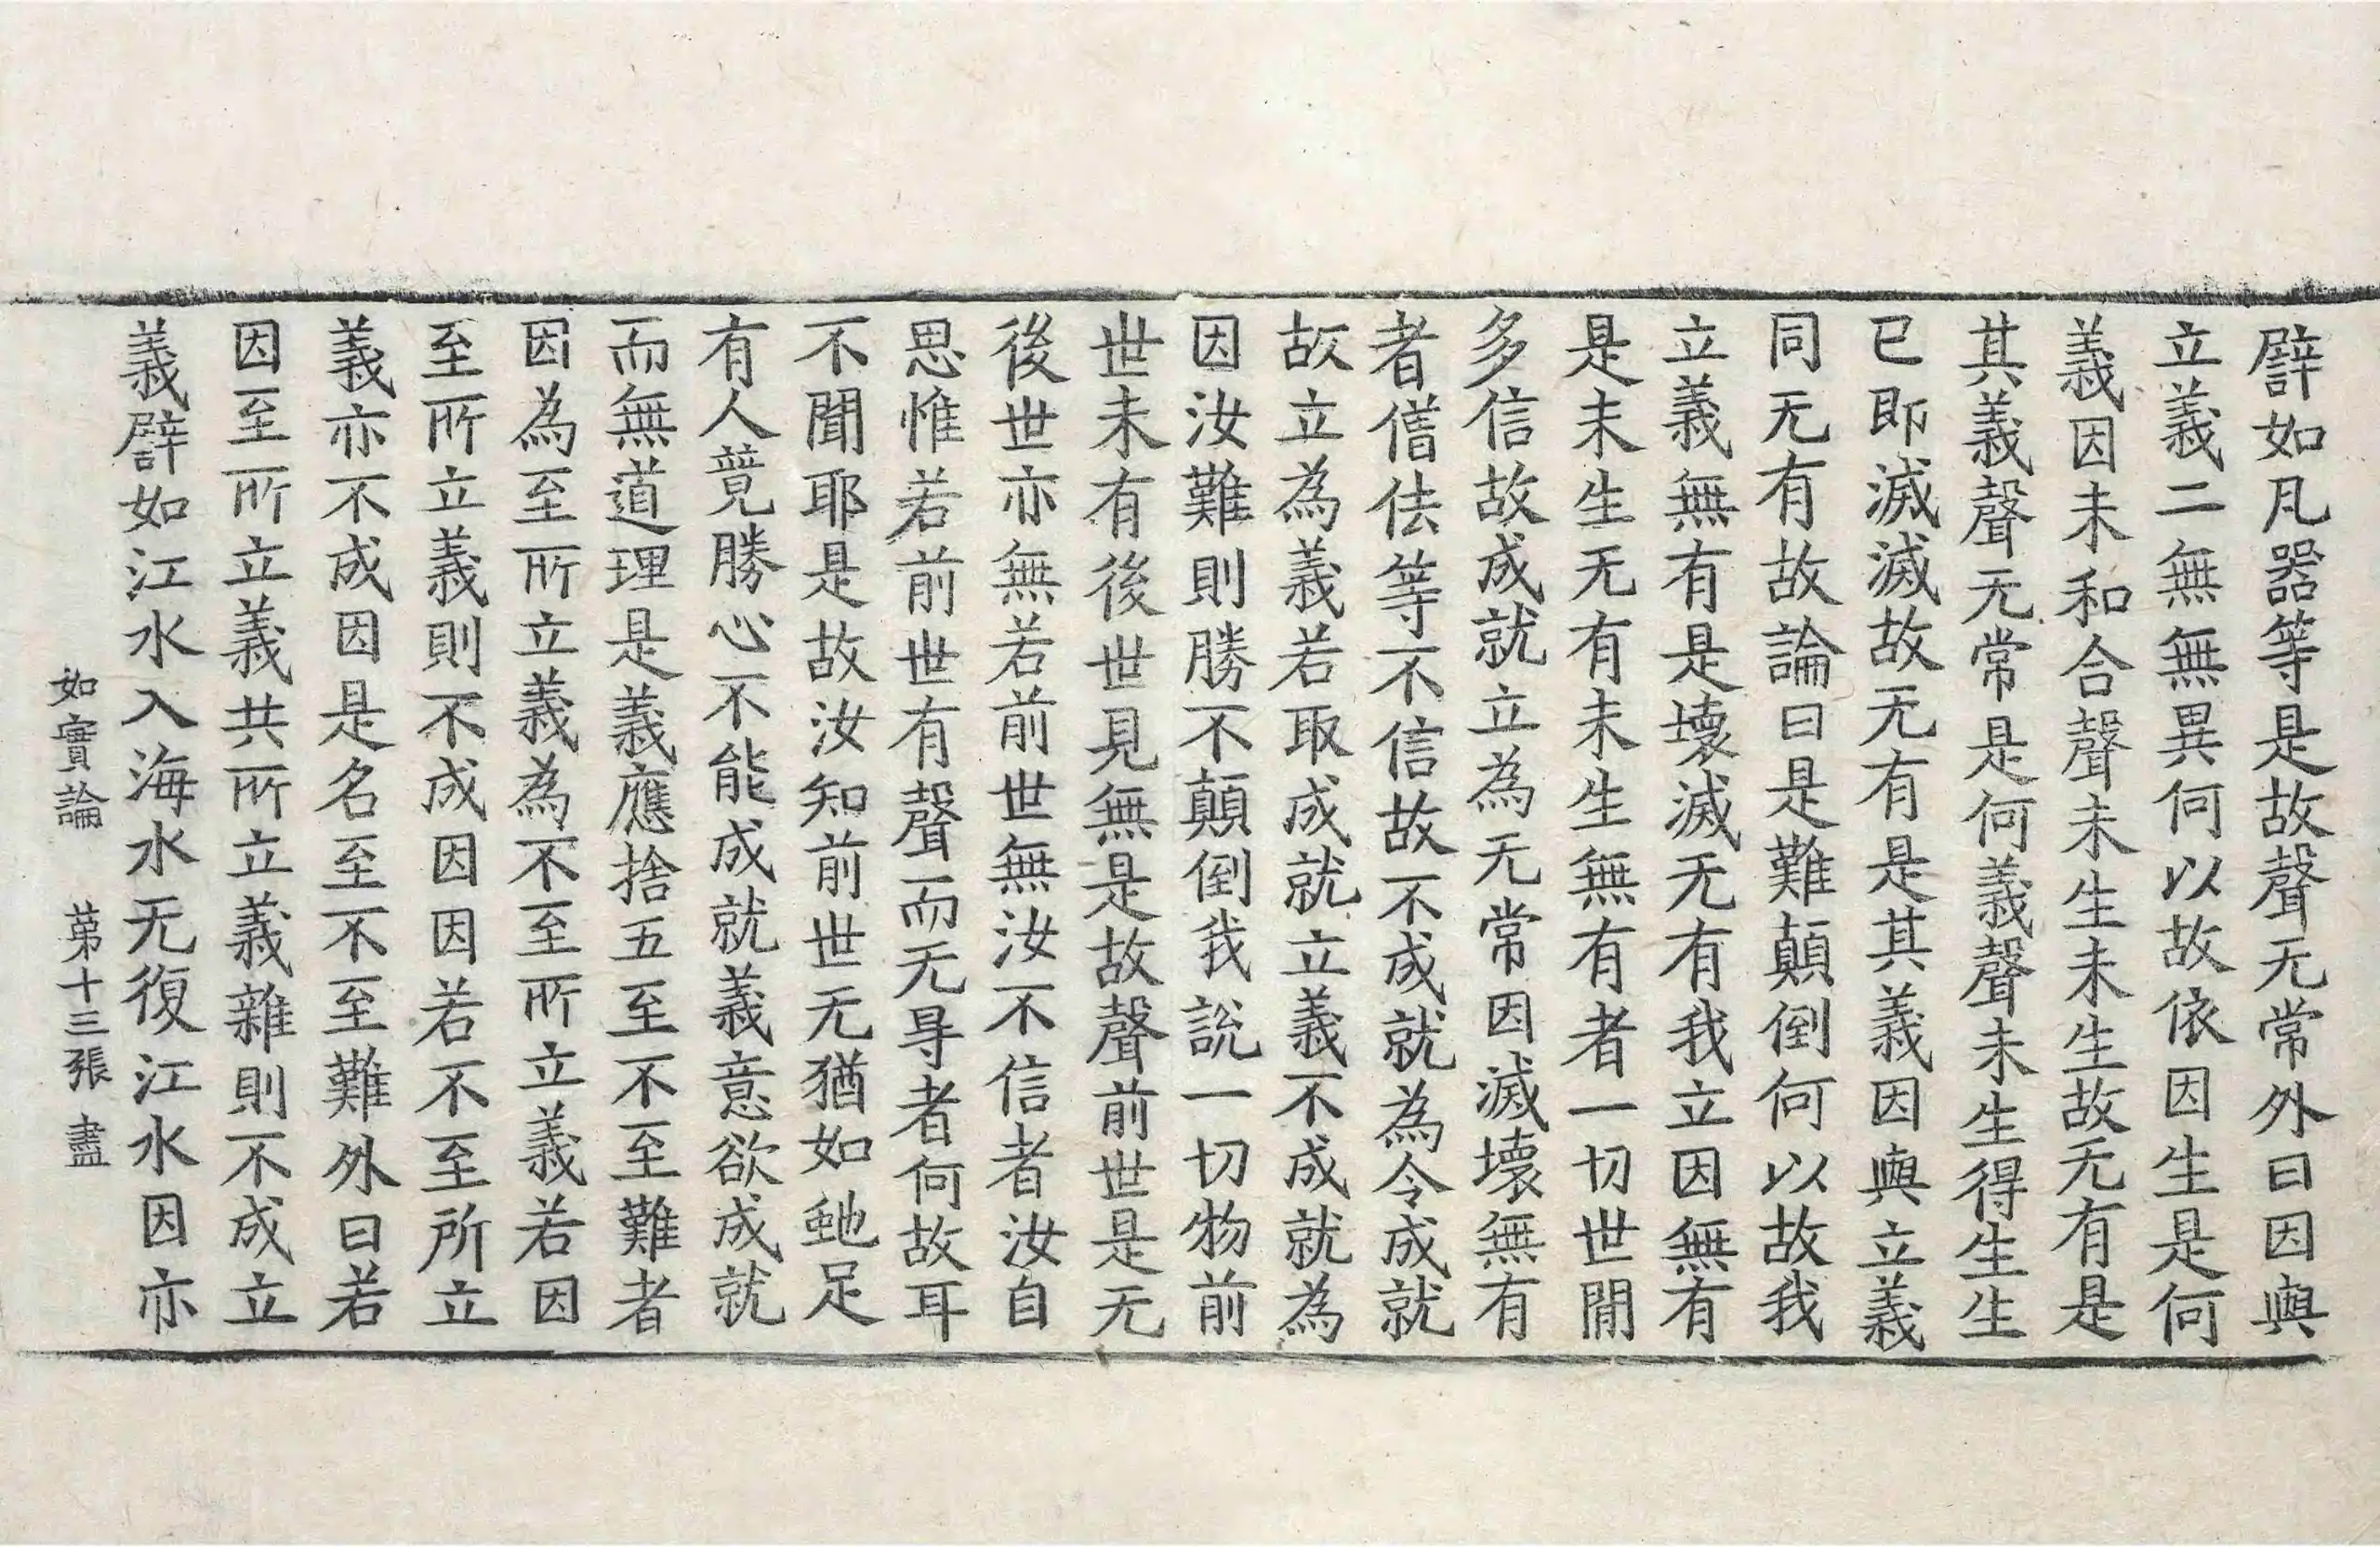 譬如凡器等是故聲无常外曰因與
立義二無無異何以故依因生是何
義因未和合聲未生未生故无有是
其義聲无常是何義聲未生得生生
已即滅滅故无有是其義因與立義
同无有故論曰是難顛倒何以故我
立義無有是壞滅无有我立因無有
是未生无有未生無有者一切世閒
多信故成就立為无常因滅壞無有
者僧佉等不信故不成就為令成就
故立為義若取成就立義不成就為
因汝難則勝不顛倒我說一切物前
世未有後世見無是故聲前世是无
後世亦無若前世無汝不信者汝自
思惟若前世有聲而无㝵者何故耳
不聞耶是故汝知前世无猶如虵足
有人竟勝心不能成就義意欲成就
而無道理是義應捨五至不至難者
因為至所立義為不至所立義若因
至所立義則不成因因若不至所立
義亦不成因是名至不至難外曰若
因至所立義共所立義雜則不成立
義譬如江水入海水无復江水因亦
如實論 第十三張 盡